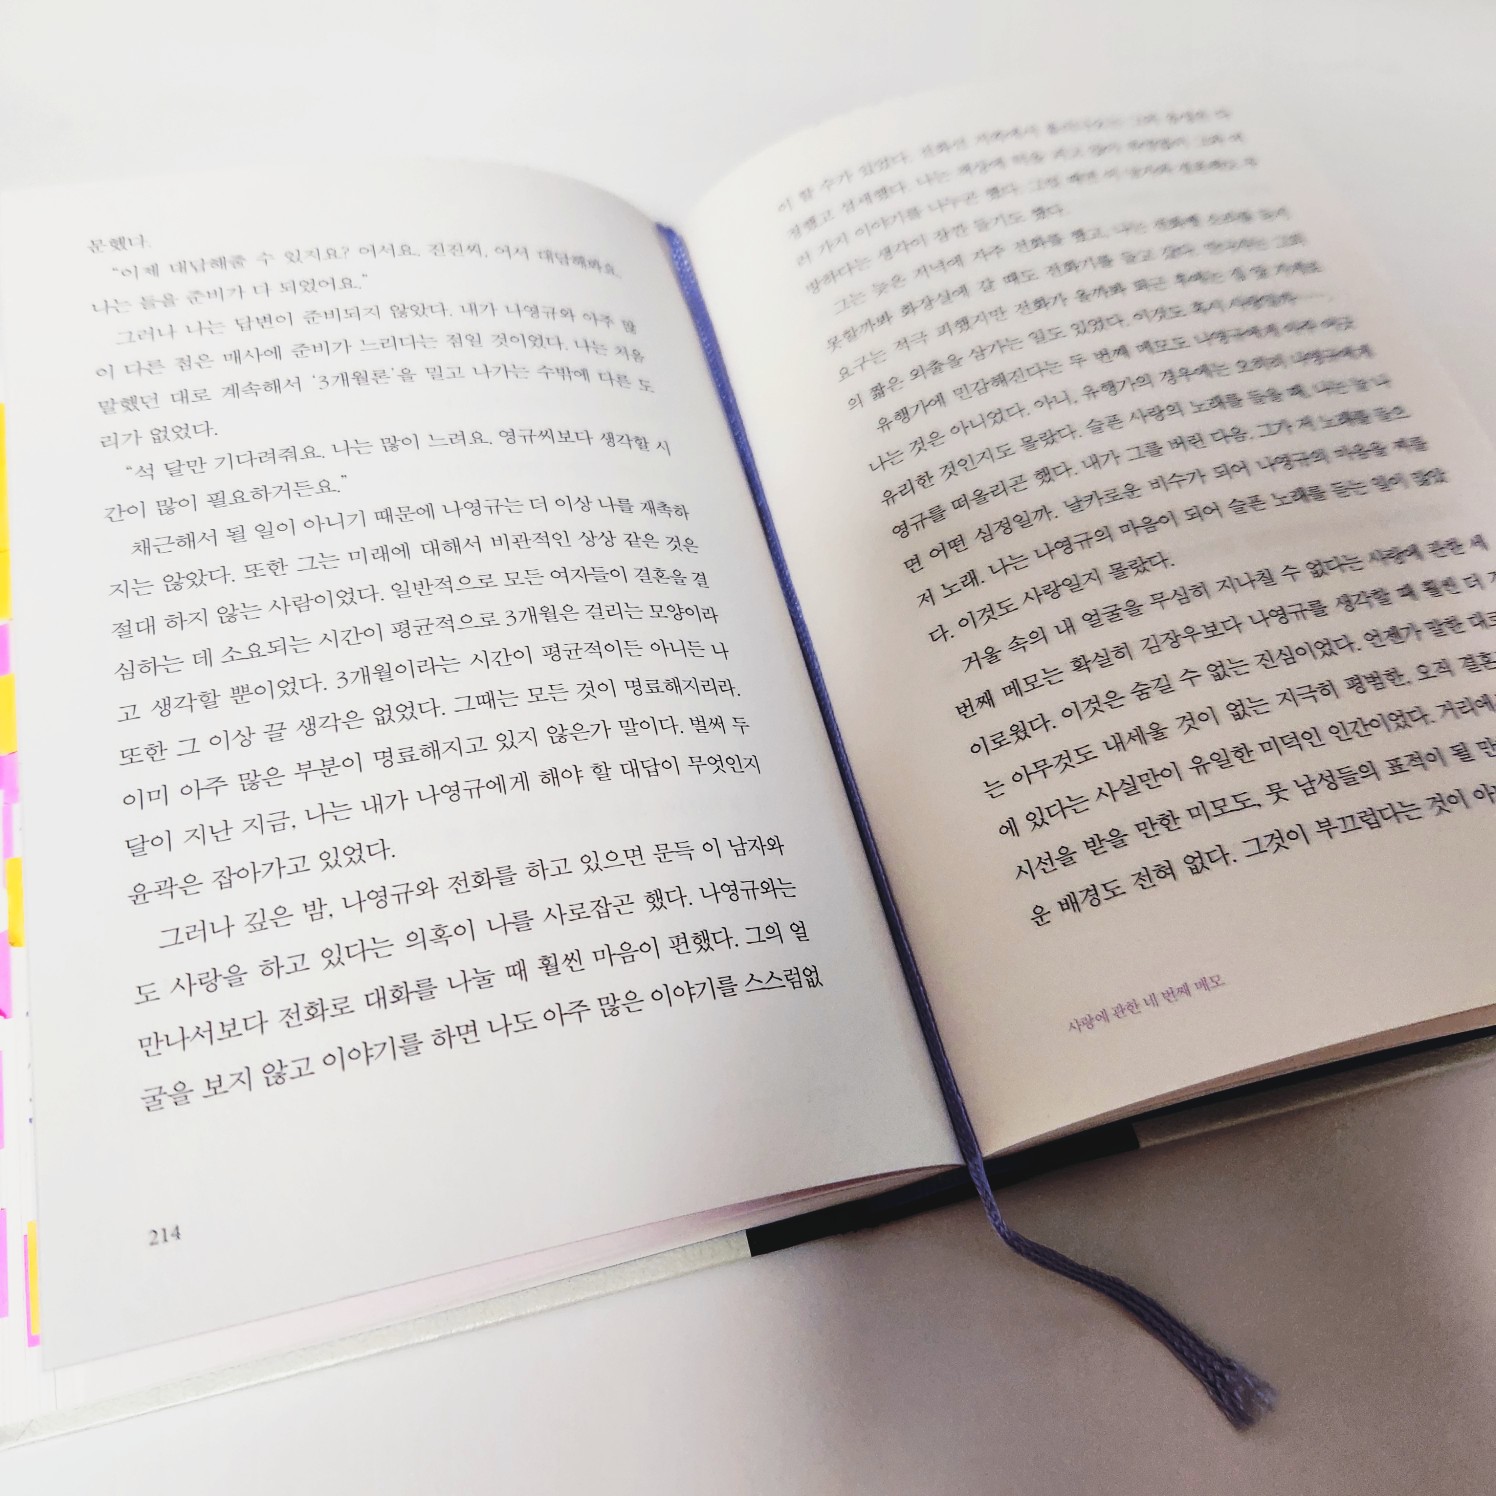 문했다.
"이제 대답해줄 수 있지요? 어서요. 진진씨, 어서 대답해봐요.
나는 들을 준비가 다 되었어요."
그러나 나는 답변이 준비되지 않았다. 내가 나영규와 아주 많
이 다른 점은 매사에 준비가 느리다는 점일 것이었다. 나는 처음
말했던 대로 계속해서 '3개월론'을 밀고 나가는 수밖에 다른 도
리가 없었다.
"석 달만 기다려줘요. 나는 많이 느려요. 영규씨보다 생각할 시
간이 많이 필요하거든요."
채근해서 될 일이 아니기 때문에 나영규는 더 이상 나를 재촉하
지는 않았다. 또한 그는 미래에 대해서 비관적인 상상 같은 것은
절대 하지 않는 사람이었다. 일반적으로 모든 여자들이 결혼을 결
심하는 데 소요되는 시간이 평균적으로 3개월은 걸리는 모양이라
고 생각할 뿐이었다. 3개월이라는 시간이 평균적이든 아니든 나
또한 그 이상 끌 생각은 없었다. 그때는 모든 것이 명료해지리라.
이미 아주 많은 부분이 명료해지고 있지 않은가 말이다. 벌써 두
달이 지난 지금, 나는 내가 나영규에게 해야 할 대답이 무엇인지
윤곽은 잡아가고 있었다.
그러나 깊은 밤, 나영규와 전화를 하고 있으면 문득 이 남자와
도 사랑을 하고 있다는 의혹이 나를 사로잡곤 했다. 나영규와는
만나서보다 전화로 대화를 나눌 때 훨씬 마음이 편했다. 그의 얼
굴을 보지 않고 이야기를 하면 나도 아주 많은 이야기를 스스럼없
214
이 할 수가 있었다. 전화선 저쪽에서 흘러나오는 그의 음성은
정했고 섬세했다. 나는
러 가지 이야기를 나누곤 했다. 그럴 때면 이 남자와 결혼해도 무
방하다는 생각이 잠깐 들기도 했다.
그는 늦은 저녁에 자주 전화를 했고, 나는 전화벨 소리를 듣지
못할까봐 화장실에 갈 때도 전화기를 들고 갔다. 만나자는 그의
요구는 적극 피했지만 전화가 올까봐 퇴근 후에는 집 앞 가게로
의 짧은 외출을 삼가는 일도 있었다. 이것도 혹시 사랑일까…….
유행가에 민감해진다는 두 번째 메모도 나영규에게 아주 어긋
나는 것은 아니었다. 아니, 유행가의 경우에는 오히려 나영규에게
유리한 것인지도 몰랐다. 슬픈 사랑의 노래를 들을 때, 나는 늘 나
영규를 떠올리곤 했다. 내가 그를 버린 다음, 그가 저 노래를 들으
면 어떤 심정일까. 날카로운 비수가 되어 나영규의 마음을 찌를
저 노래. 나는 나영규의 마음이 되어 슬픈 노래를 듣는 일이 많았
다. 이것도 사랑일지 몰랐다.
거울 속의 내 얼굴을 무심히 지나칠 수 없다는 사랑에 관한 세
번째 메모는 확실히 김장우보다 나영규를 생각할 때 훨씬 더
이로웠다. 이것은 숨길 수 없는 진심이었다. 언젠가 말한 대로
는 아무것도 내세울 것이 없는 지극히 평범한, 오직 결혼
에 있다는 사실만이 유일한 미덕인 인간이었다. 거리에
시선을 받을 만한 미모도, 뭇 남성들의 표적이 될 만
운 배경도 전혀 없다. 그것이 부끄럽다는 것이 아
사랑에 관한 네 번째 메모